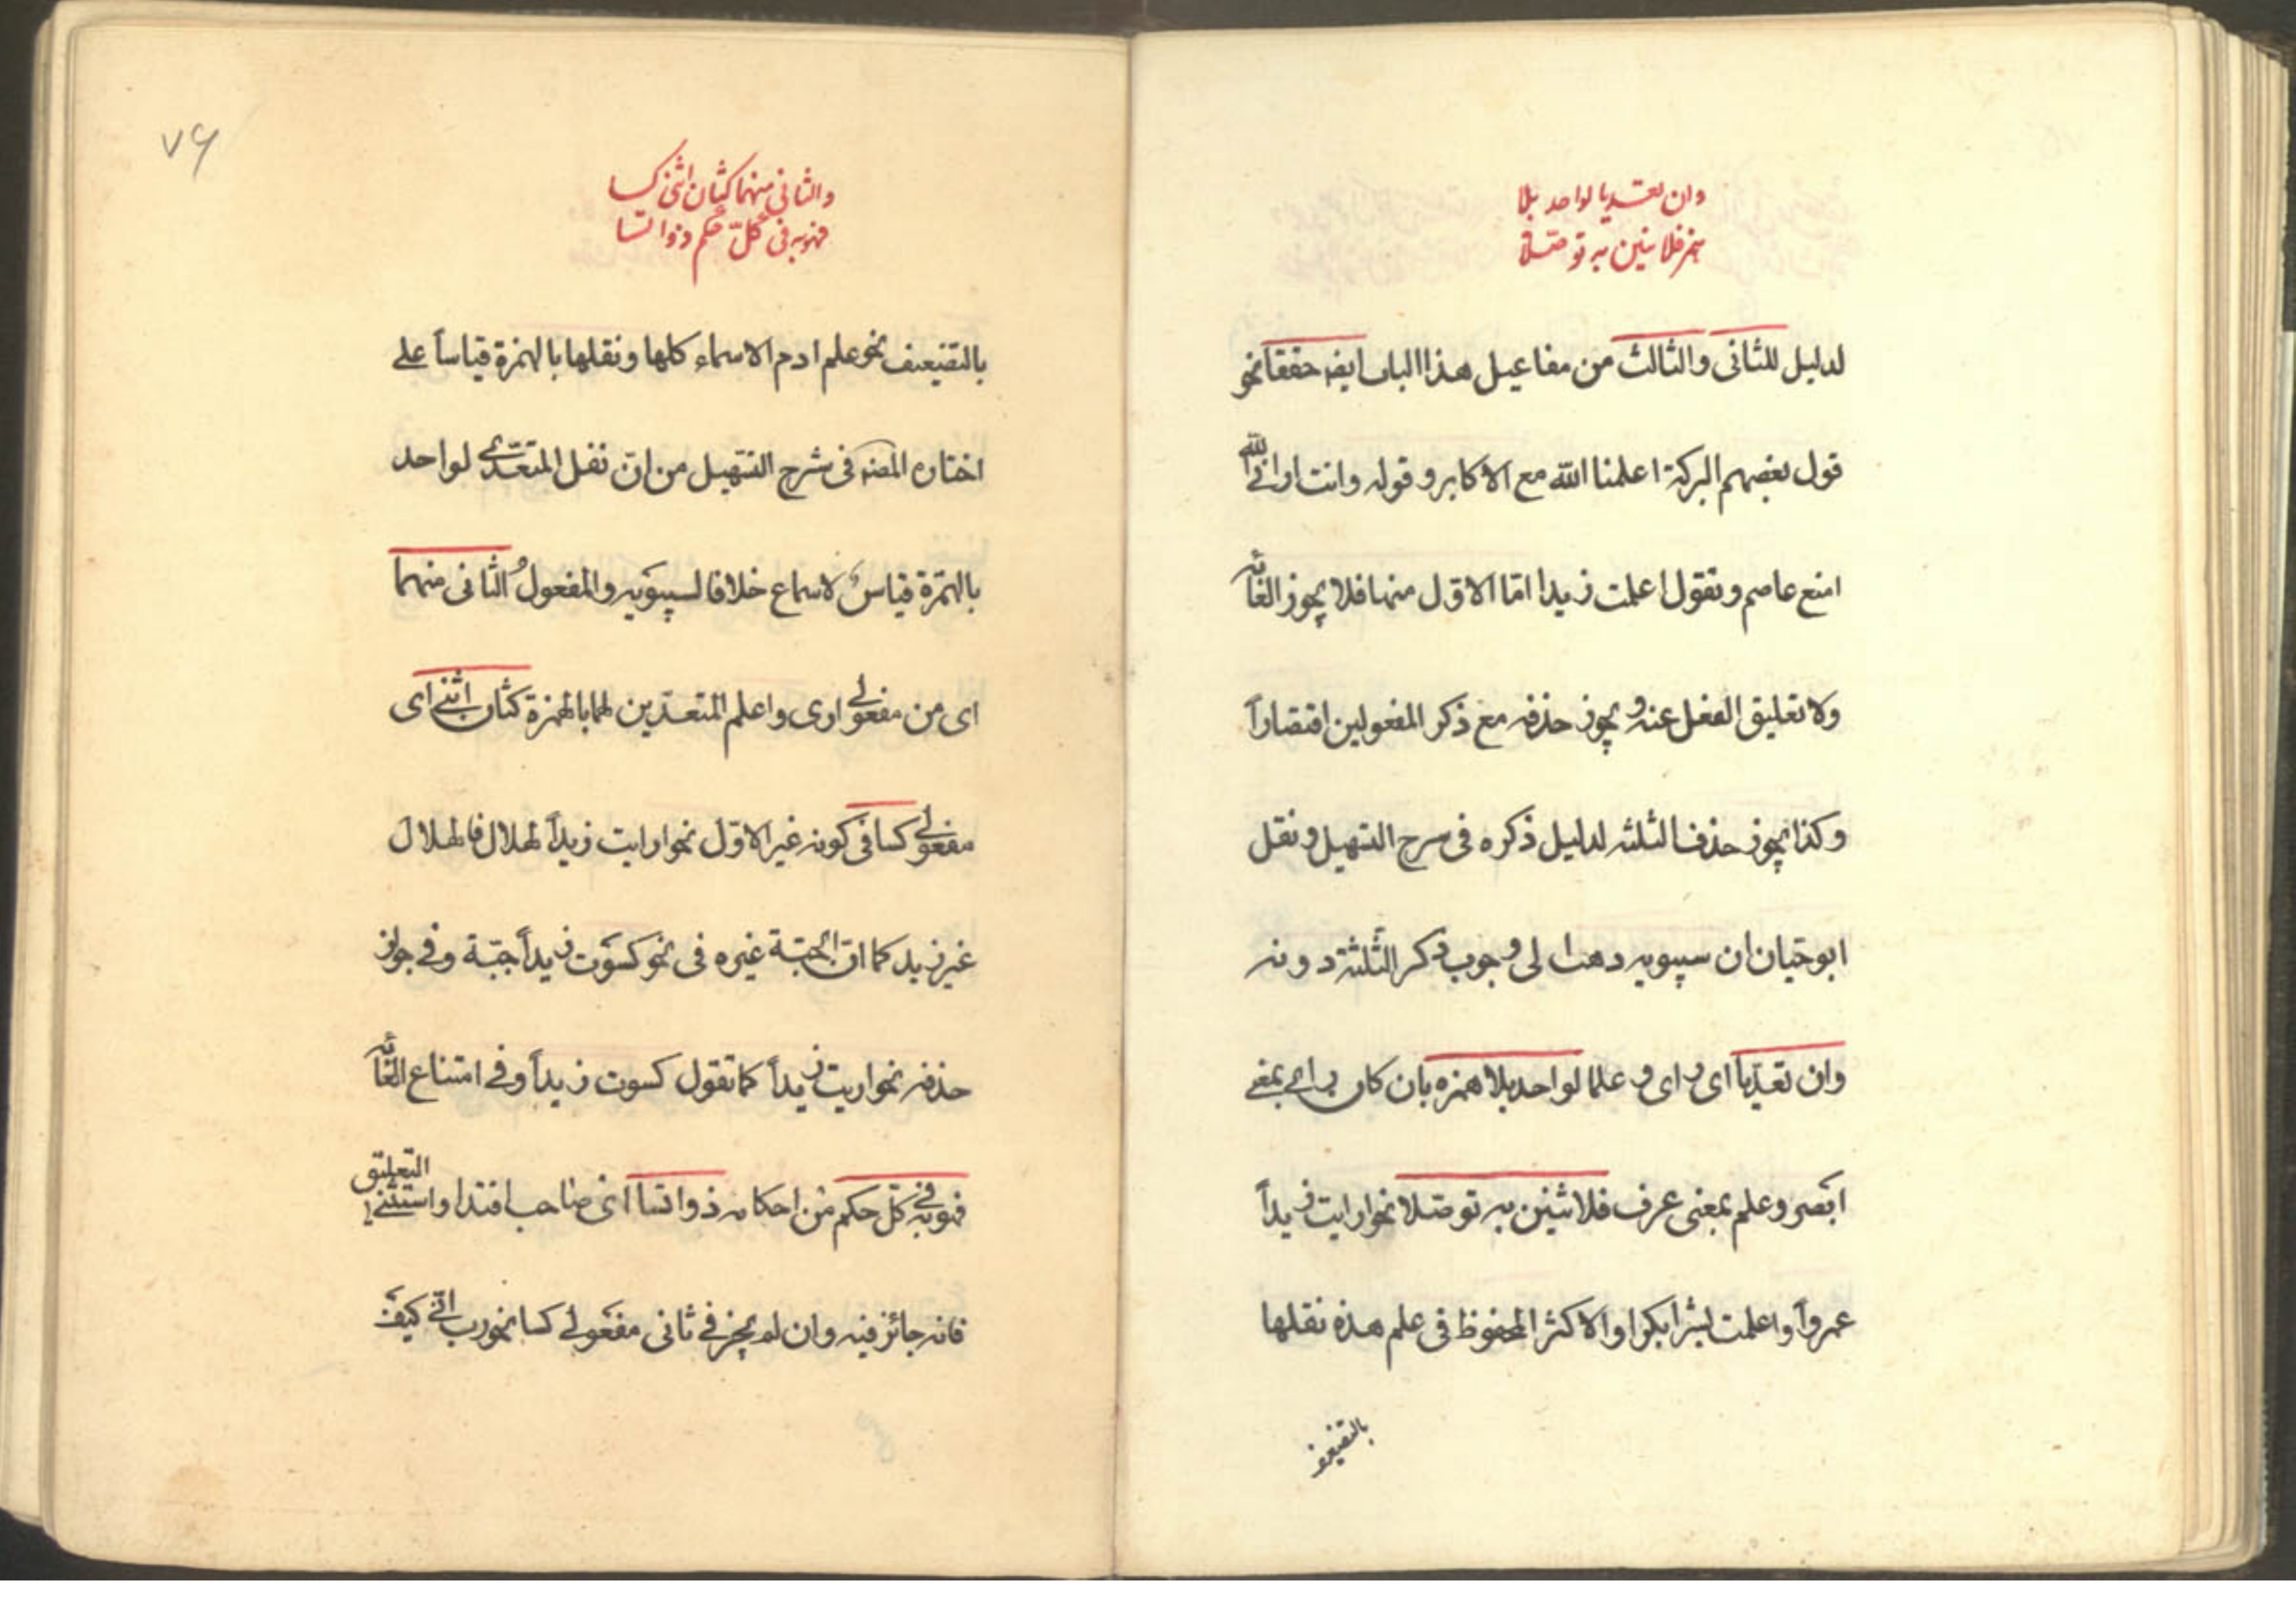 وان تعديا لواحد بلا
همز فلاثنين به توصلا
لدليل للثانى والثالث من مفاعيل هذا الباب ايضا حققا نحو
قول بعضهم البركة اعلمنا الله مع الاكابر وقوله وانت ارانى الله
امنع عاصم وتقول اعلمت زيدا امّا الاوّل منها فلا يجوز الغائه
ولا تعليق الفعل عنه ويجوز حذفه مع ذكر المفعولين اقتصاراً
وكذا يجوز حذف الثلثه لدليل ذكره فى شرح التسهيل ونقل
ابوحيّان ان سيبويه ذهب الى وجوب ذكر الثّلثة دونه
وان تعدّيا اى راى وعلما لواحد بلا همزه بان كان راى بمعنى
ابصر وعلم بمعنى عرف فلاثنين به توصّلا نحو ارايت زيداً
عمرواً واعلمت بشرا بكرا والاكثر المحفوظ فى علم هذه نقلها
بالتضعيف
٧٦
والثانى منهما كثان اثنى كسا
فهو به فى كلّ حكم ذو ائتسا
بالتضعيف نحو علم ادم الاسماء كلها ونقلها بالهمزة قياساً على
اختاره المصنه فى شرح التسهيل من انّ نقل المتعدّى لواحد
بالهمزة قياسٌ لاسماع خلافا لسيبويه والمفعولُ الثانى منهما
اى من مفعولى ارى واعلم المتعدّيين لهما بالهمزة كثان اثنى اى
مفعولى كسا فى كونه غير الاوّل نحو ارايت زيداً الهلال فالهلال
غير زيد كما انّ الجبّة غيره فى نحو كسوت زيداً جبّة وفى جواز
حذفه نحو اريت زيداً كما تقول كسوت زيداً وفى امتناع الغائه
فهو به فى كلّ حكم من احكامه ذو ائتسا اى صاحب اقتدا واستثنى التعليق
فانه جائز فيه وان لم يجز فى ثانى مفعولى كسا نحو رب ارنى كيف